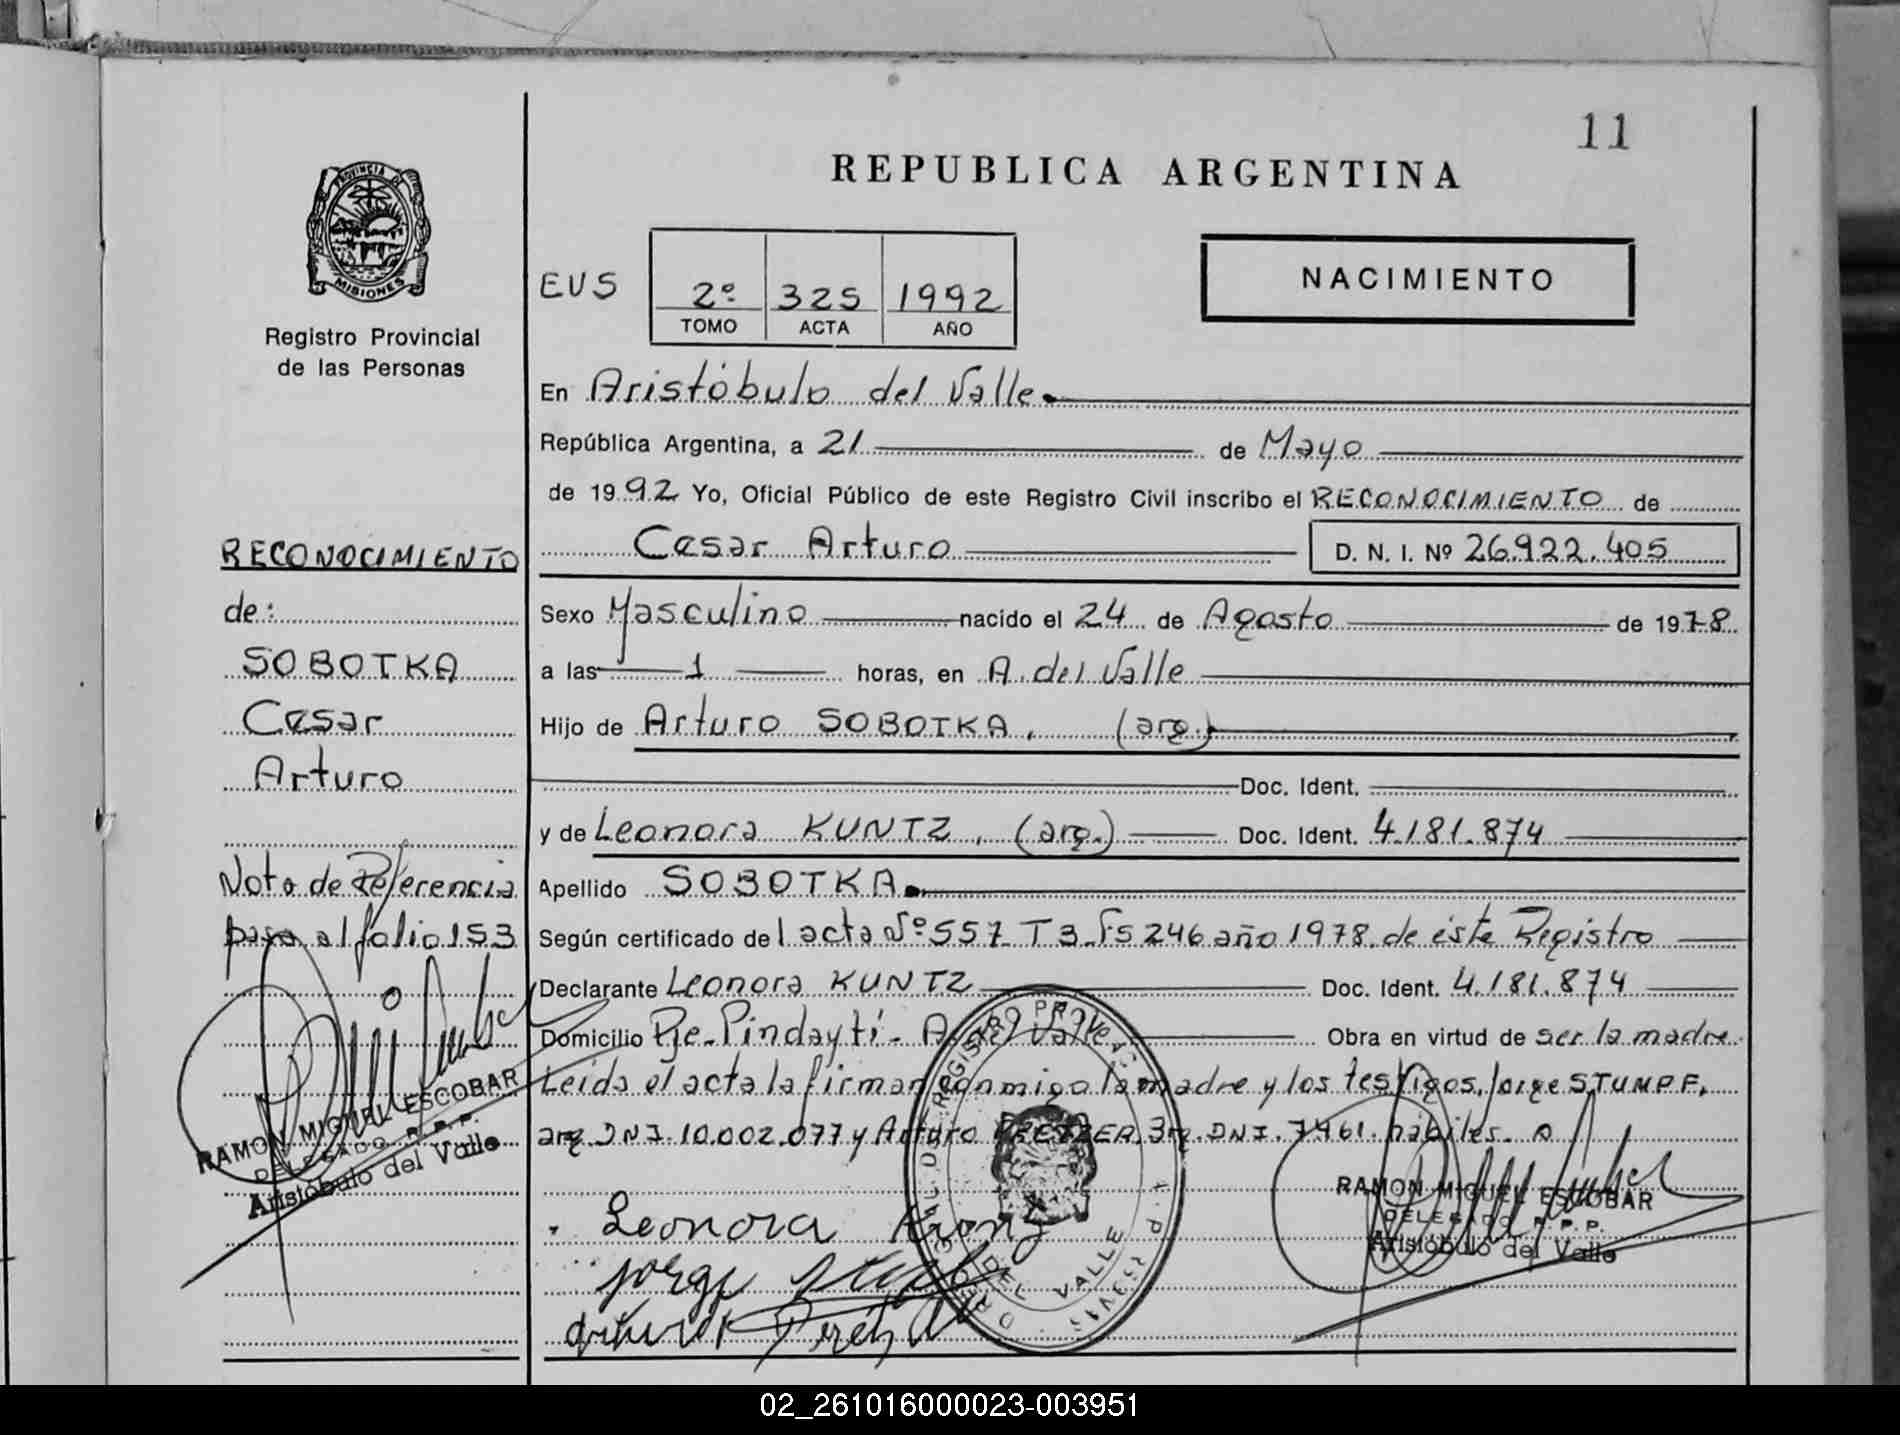 11
REPUBLICA ARGENTINA
PROVINCIA DE
MISIONES
Registro Provincial
de las Personas
EUS
2º 325 1992
TOMO ACTA AÑO
NACIMIENTO
En Aristóbulo del Valle
República Argentina, a 21 de Mayo
de 1992 Yo, Oficial Público de este Registro Civil inscribo el RECONOCIMIENTO de
Cesar Arturo D. N. I. Nº 26.922.405
Sexo Masculino nacido el 24 de Agosto de 1978
a las 1 horas, en A. del Valle
Hijo de Arturo SOBOTKA, (arg.)
Doc. Ident.
y de Leonora KUNTZ, (arg.) Doc. Ident. 4.181.874
Apellido SOBOTKA
Según certificado del acta Nº 557 T 3 Fs 246 año 1978 de éste Registro
Declarante Leonora KUNTZ Doc. Ident. 4.181.874
Domicilio Pje. Pindaytí - A. del Valle Obra en virtud de ser la madre
Leída el acta la firman conmigo la madre y los testigos, Jorge STUMPF,
arg. DNI. 10.002.077 y Arturo arg. DNI. hábiles.
Leonora
Jorge
RAMON MIGUEL ESCOBAR
DELEGADO R.P.P.
Aristóbulo del Valle
DEL VALLE
RECONOCIMIENTO
de:
SOBOTKA
Cesar
Arturo
Nota de Referencia
pasa al folio 153
RAMON MIGUEL ESCOBAR
DELEGADO R.P.P.
Aristóbulo del Valle
02_261016000023-003951